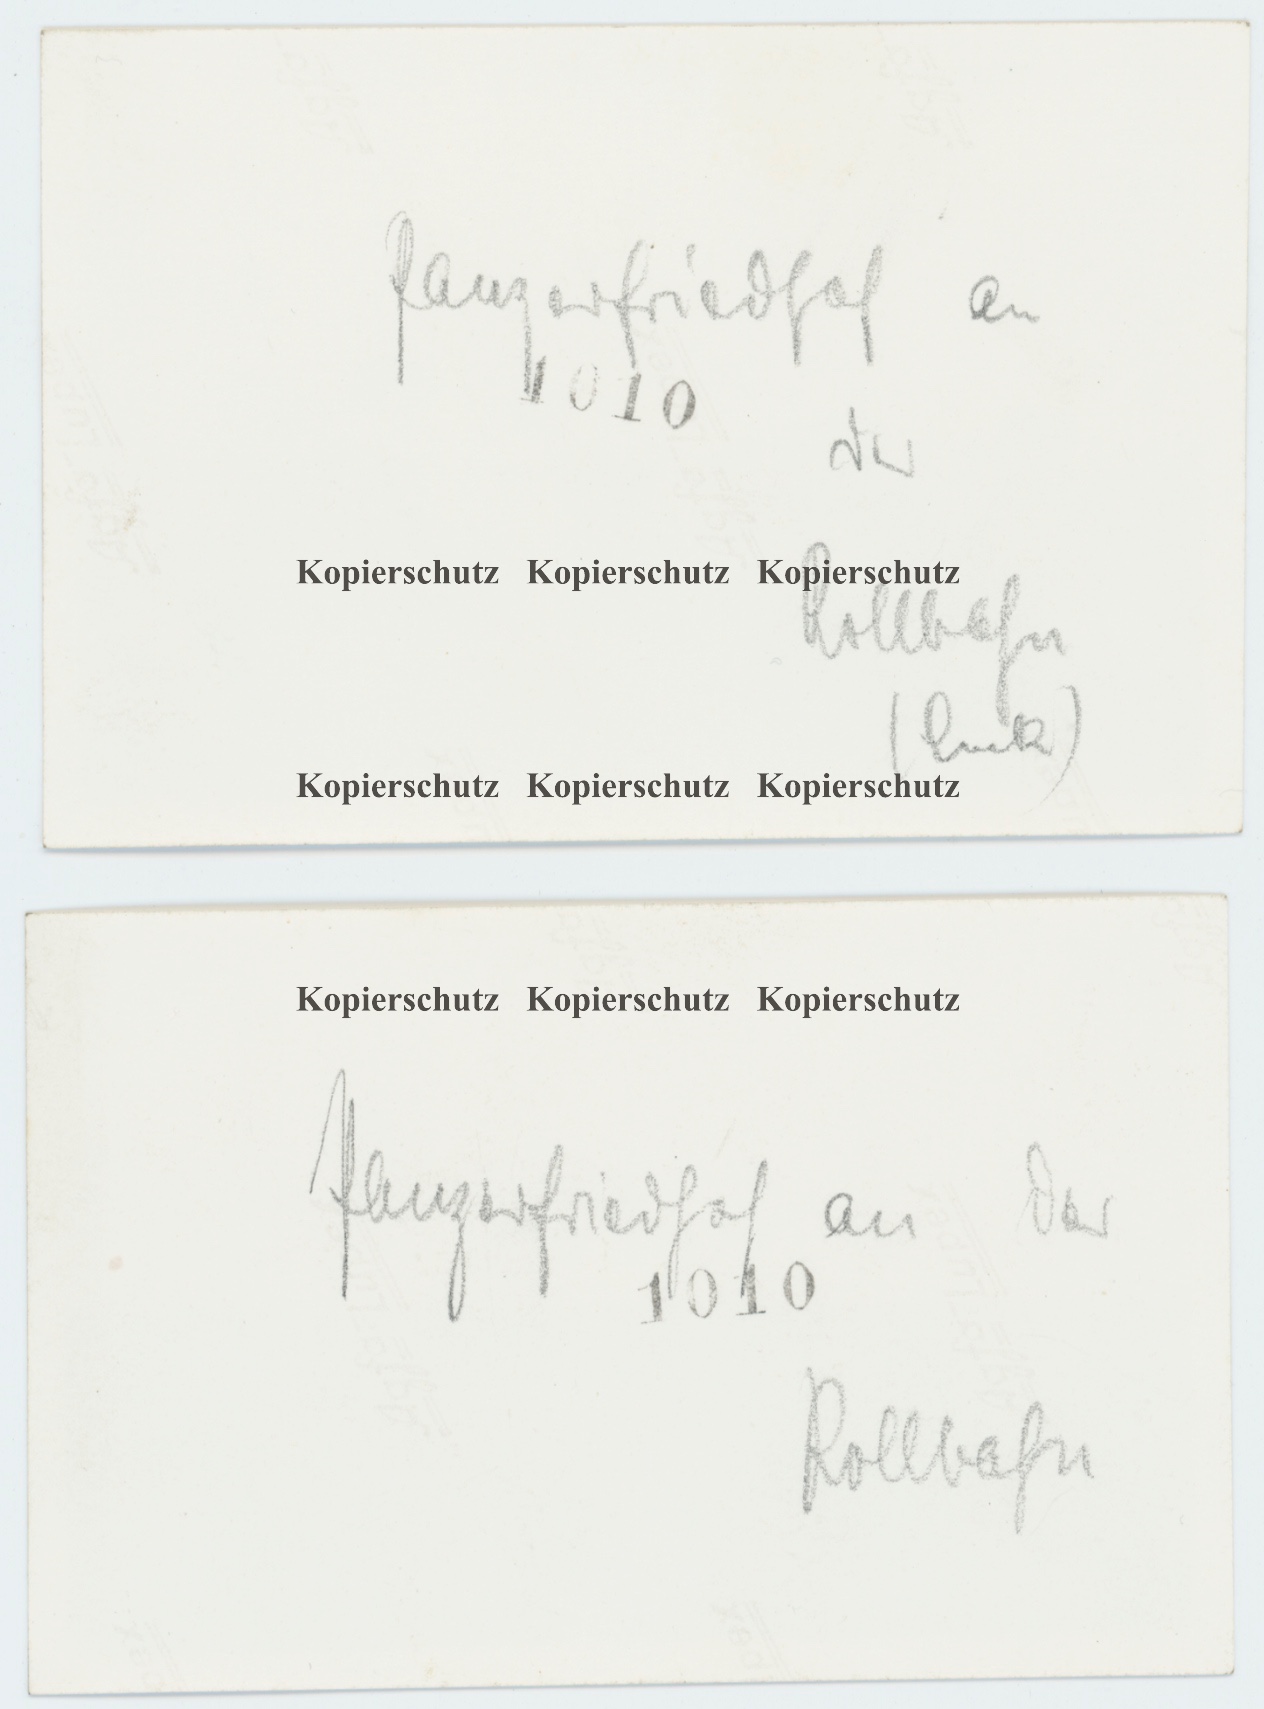 Panzerfriedhof an
1010
der
Kopierschutz Kopierschutz Kopierschutz
Rollbahn
Kopierschutz Kopierschutz Kopierschutz
Kopierschutz Kopierschutz Kopierschutz
Panzerfriedhof an der
1010
Rollbahn